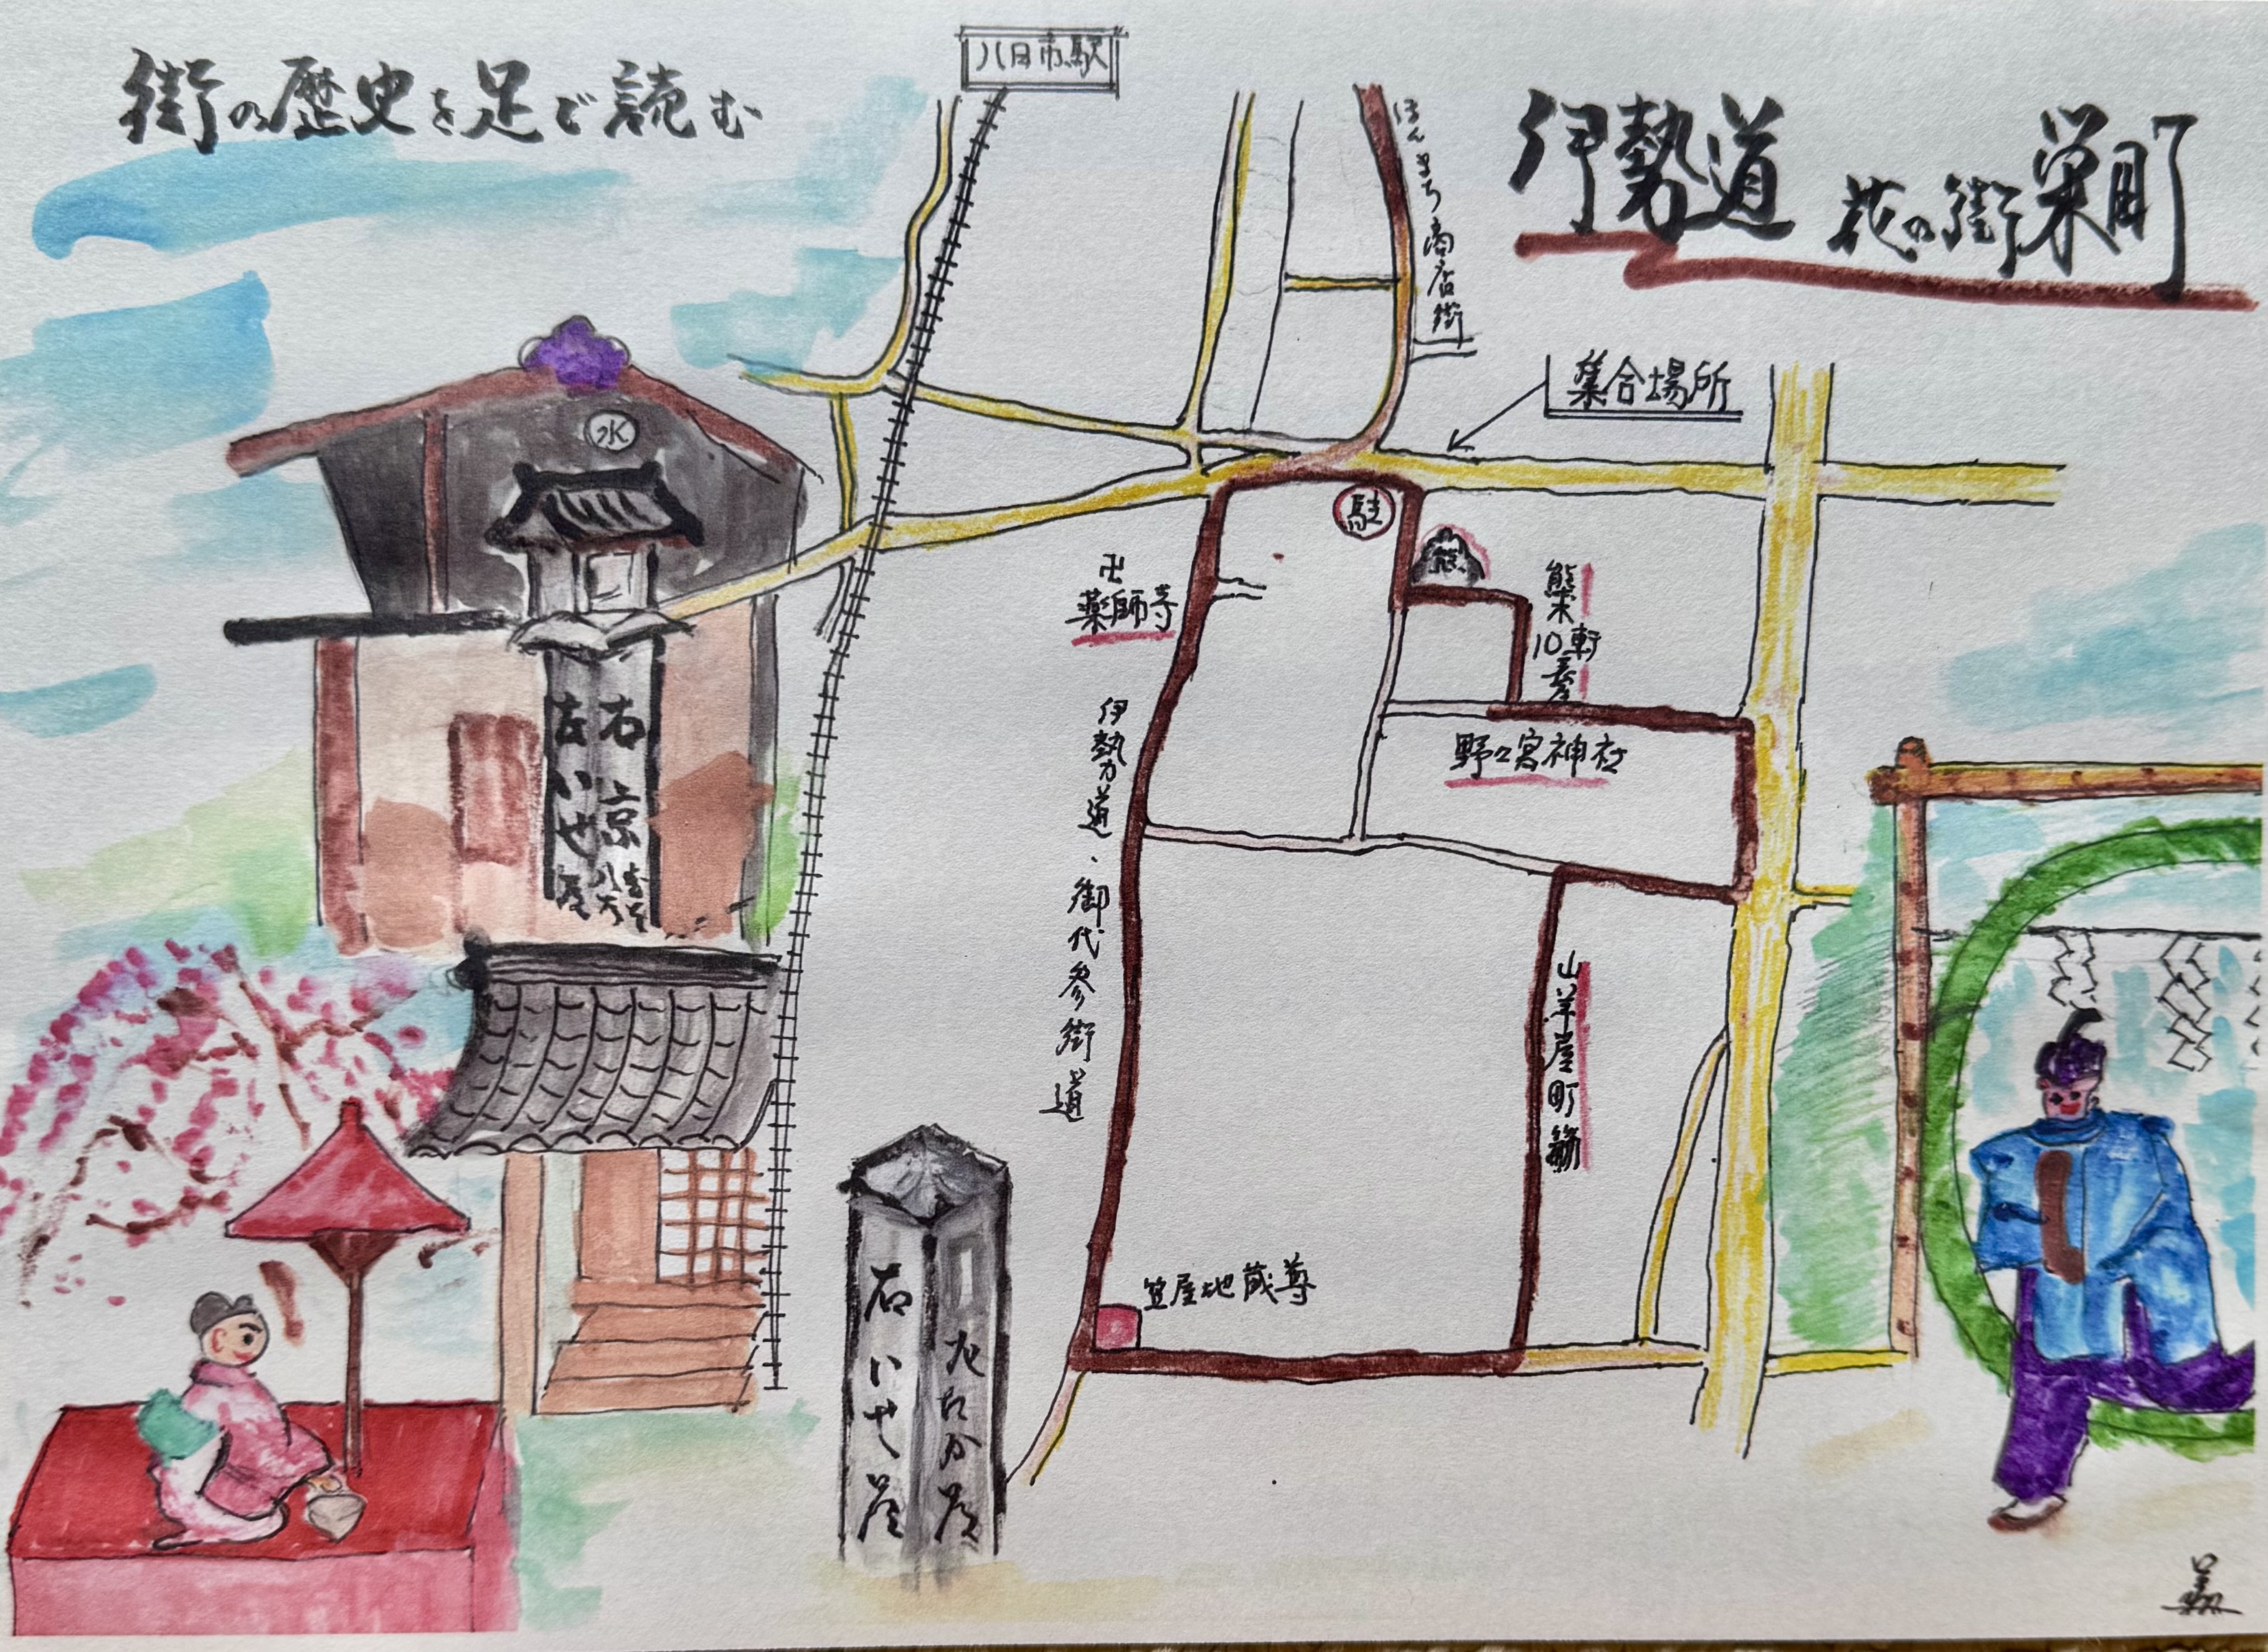 街の歴史を足で読む
八日市駅
伊勢道 花の街 栄町
ほんまち商店街
集合場所
水
駐
熊
卍
薬師寺
熊木10軒
野々宮神社
伊勢道、御代参街道
山羊屋町筋
笠屋地蔵尊
右 京
左 いせ道
右 いせ道